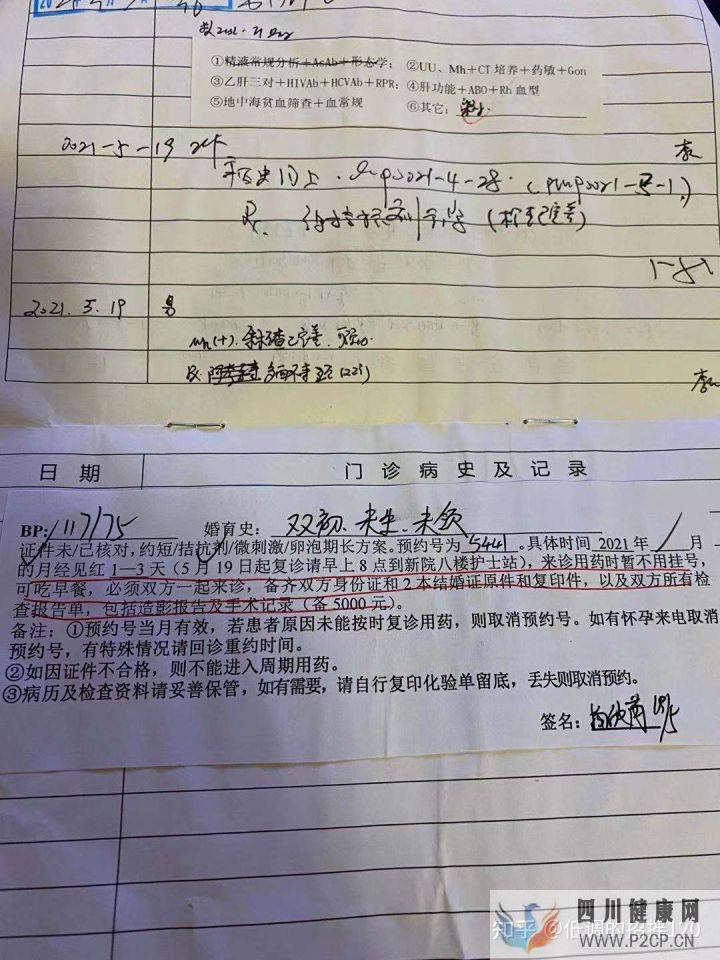 ①精液常规分析+AsAb+形态学；②UU、Mh+CT 培养+药敏+Gon
③乙肝三对+HIVAb+HCVAb+RPR；④肝功能+ABO+Rh 血型
⑤地中海贫血筛查+血常规 ⑥其它：
2021-5-19
病史同上. Lmp2021-4-28. (pmp2021-
2021.5.19 男
Mh(+).
日期 门诊病史及记录
BP: 117/75 婚育史： 双初.未生.未领
证件未/已核对，约短/拮抗剂/微刺激/卵泡期长方案。预约号为 5441 。具体时间 2021 年 月
的月经见红 1—3 天（5 月 19 日起复诊请早上 8 点到新院八楼护士站），来诊用药时暂不用挂号，
可吃早餐，必须双方一起来诊，备齐双方身份证和 2 本结婚证原件和复印件，以及双方所有检
查报告单，包括造影报告及手术记录（备 5000 元）。
备注：①预约号当月有效，若患者原因未能按时复诊用药，则取消预约号。如有怀孕来电取消
预约号，有特殊情况请回诊重约时间。
②如因证件不合格，则不能进入周期用药。
③病历及检查资料请妥善保管，如有需要，请自行复印化验单留底，丢失则取消预约。
签名： 18/5
知乎 @低调的招牌120
四川健康网
WWW.P2CP.CN